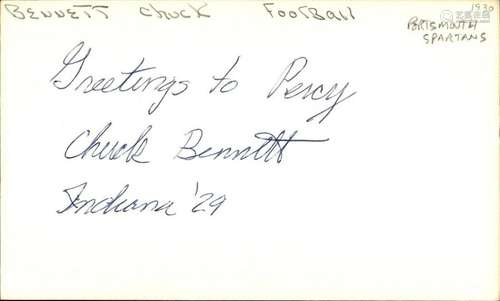 BENNETT Chuck FootBall 1930
PORTSMOUTH
SPARTANS
Greetings to Percy
Chuck Bennett
Indiana '29